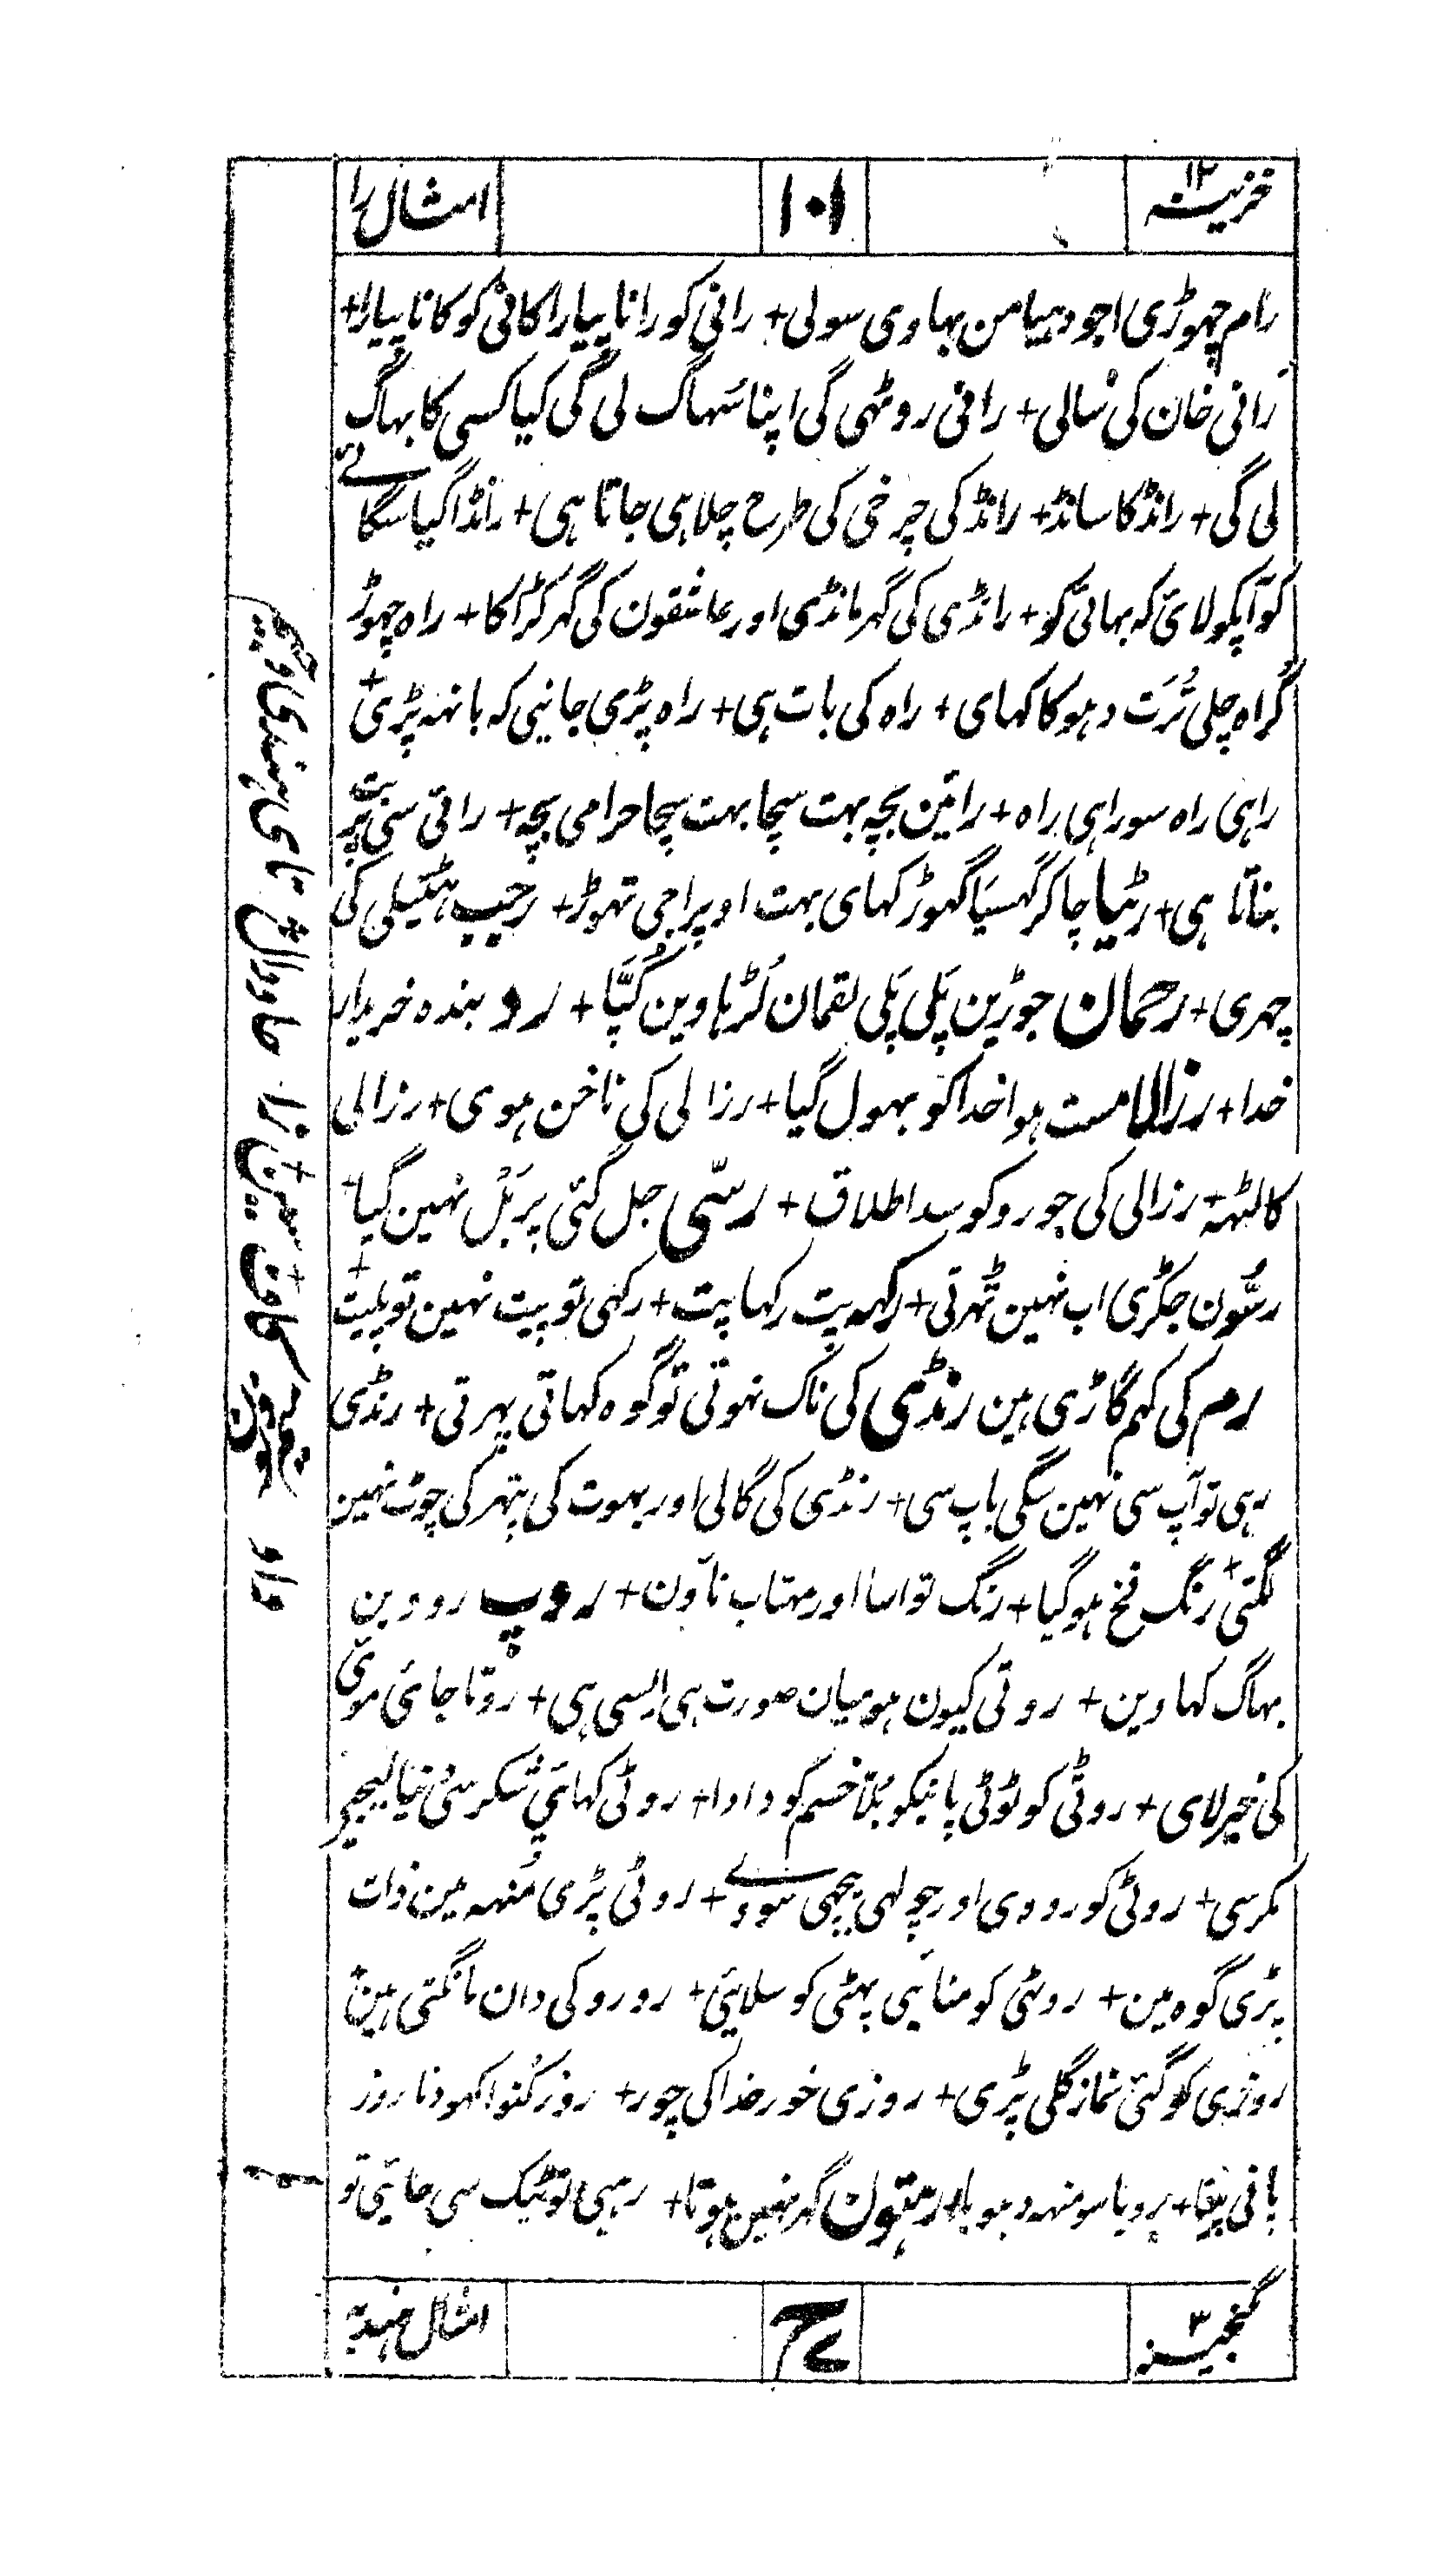 خزینہ ۱۲
۱۰۱
امثال را
رام چھوڑی اجودہیا من بہاوی سولی + رانی کو رانا پیارا کانی کو کانا پیارا +
رانی خان کی سالی + رانی روٹہی گی اپنا سہاگ لی گی کیا کسی کا بہاگ
لی گی + رانڈ کا سانڈ + رانڈ کی چرخی کی طرح چلا ہی جاتا ہی + رانڈا گیا سگائے
کو آپکو لائ کہ بہائی کو + رانڈی کی گہر مانڈی اور عاشقون کی گہر کڑاکا + راہ چہوڑ
گراہ چلی تُرَت دہوکا کہای + راہ کی بات ہی + راہ پڑی جانیی کہ بانہہ پڑی +
راہی راہ سوراہی راہ + راتین بچہ بہت سچا بہت سچا حرامی بچہ + رائی سی پربت
بناتا ہی + رٹیا چاکر گہسیَا گہوڑ کہای بہت اوپراجی تہوڑ + رجب ہٹیلی کی
چہری + رحمان جوڑین پَلی پَلی لقمان لُڑہاوین کُپَّا + رد بندہ خریدار
خدا + رزالا مست ہوا خدا کو بہول گیا + رزالی کی ناخن ہوی + رزالی
کا لٹہہ + رزالی کی جورو کو سدا طلاق + رسّی جل گئی پر بَلْ نہین گیا +
رسُّون جکڑی اب نہین ٹہرتی + رکہہ پت رکہا پت + رکہی تو پیت نہین تو پلیت +
رم کی کہم گاڑی ہین رنڈی کی ناک نہوتی تو گوہ کہاتی پہرتی + رنڈی
رہی تو آپ سی نہین سگی باپ سی + رنڈی کی گالی اور بہوت کی پتہر کی چوٹ نہین
لگتی + رنگ فخ ہو گیا + رنگ تواسا اور مہتاب ناؤن + روپ رووین
بہاگ کہاوین + روتی کیون ہو میان صورت ہی ایسی ہی + روتا جائ موی
کی خبر لای + روٹی کو ٹوٹی پانیکو بُلّا خسم کو دادا + روٹی کہائی شکر سی دنیا لیجیی
مکر سی + روٹی کو رووی اور چولہی پیچہی سووے + روٹی پڑی مُنہہ مین ذات
پڑی گوہ مین + روٹہی کو منائیی پہٹی کو سلائیی + رو رو کی دان مانگتی ہین +
روزی کو گئی نماز گلی پڑی + روزی خور خدا کی چور + روز کنوا کہودنا روز
پانی پینا + رویا سو منہہ دہویا + رہتون گہر نہین ہوتا + رہیی تو ٹیک سی جائیی تو
گنجینہ ۳
امثال ہندیہ